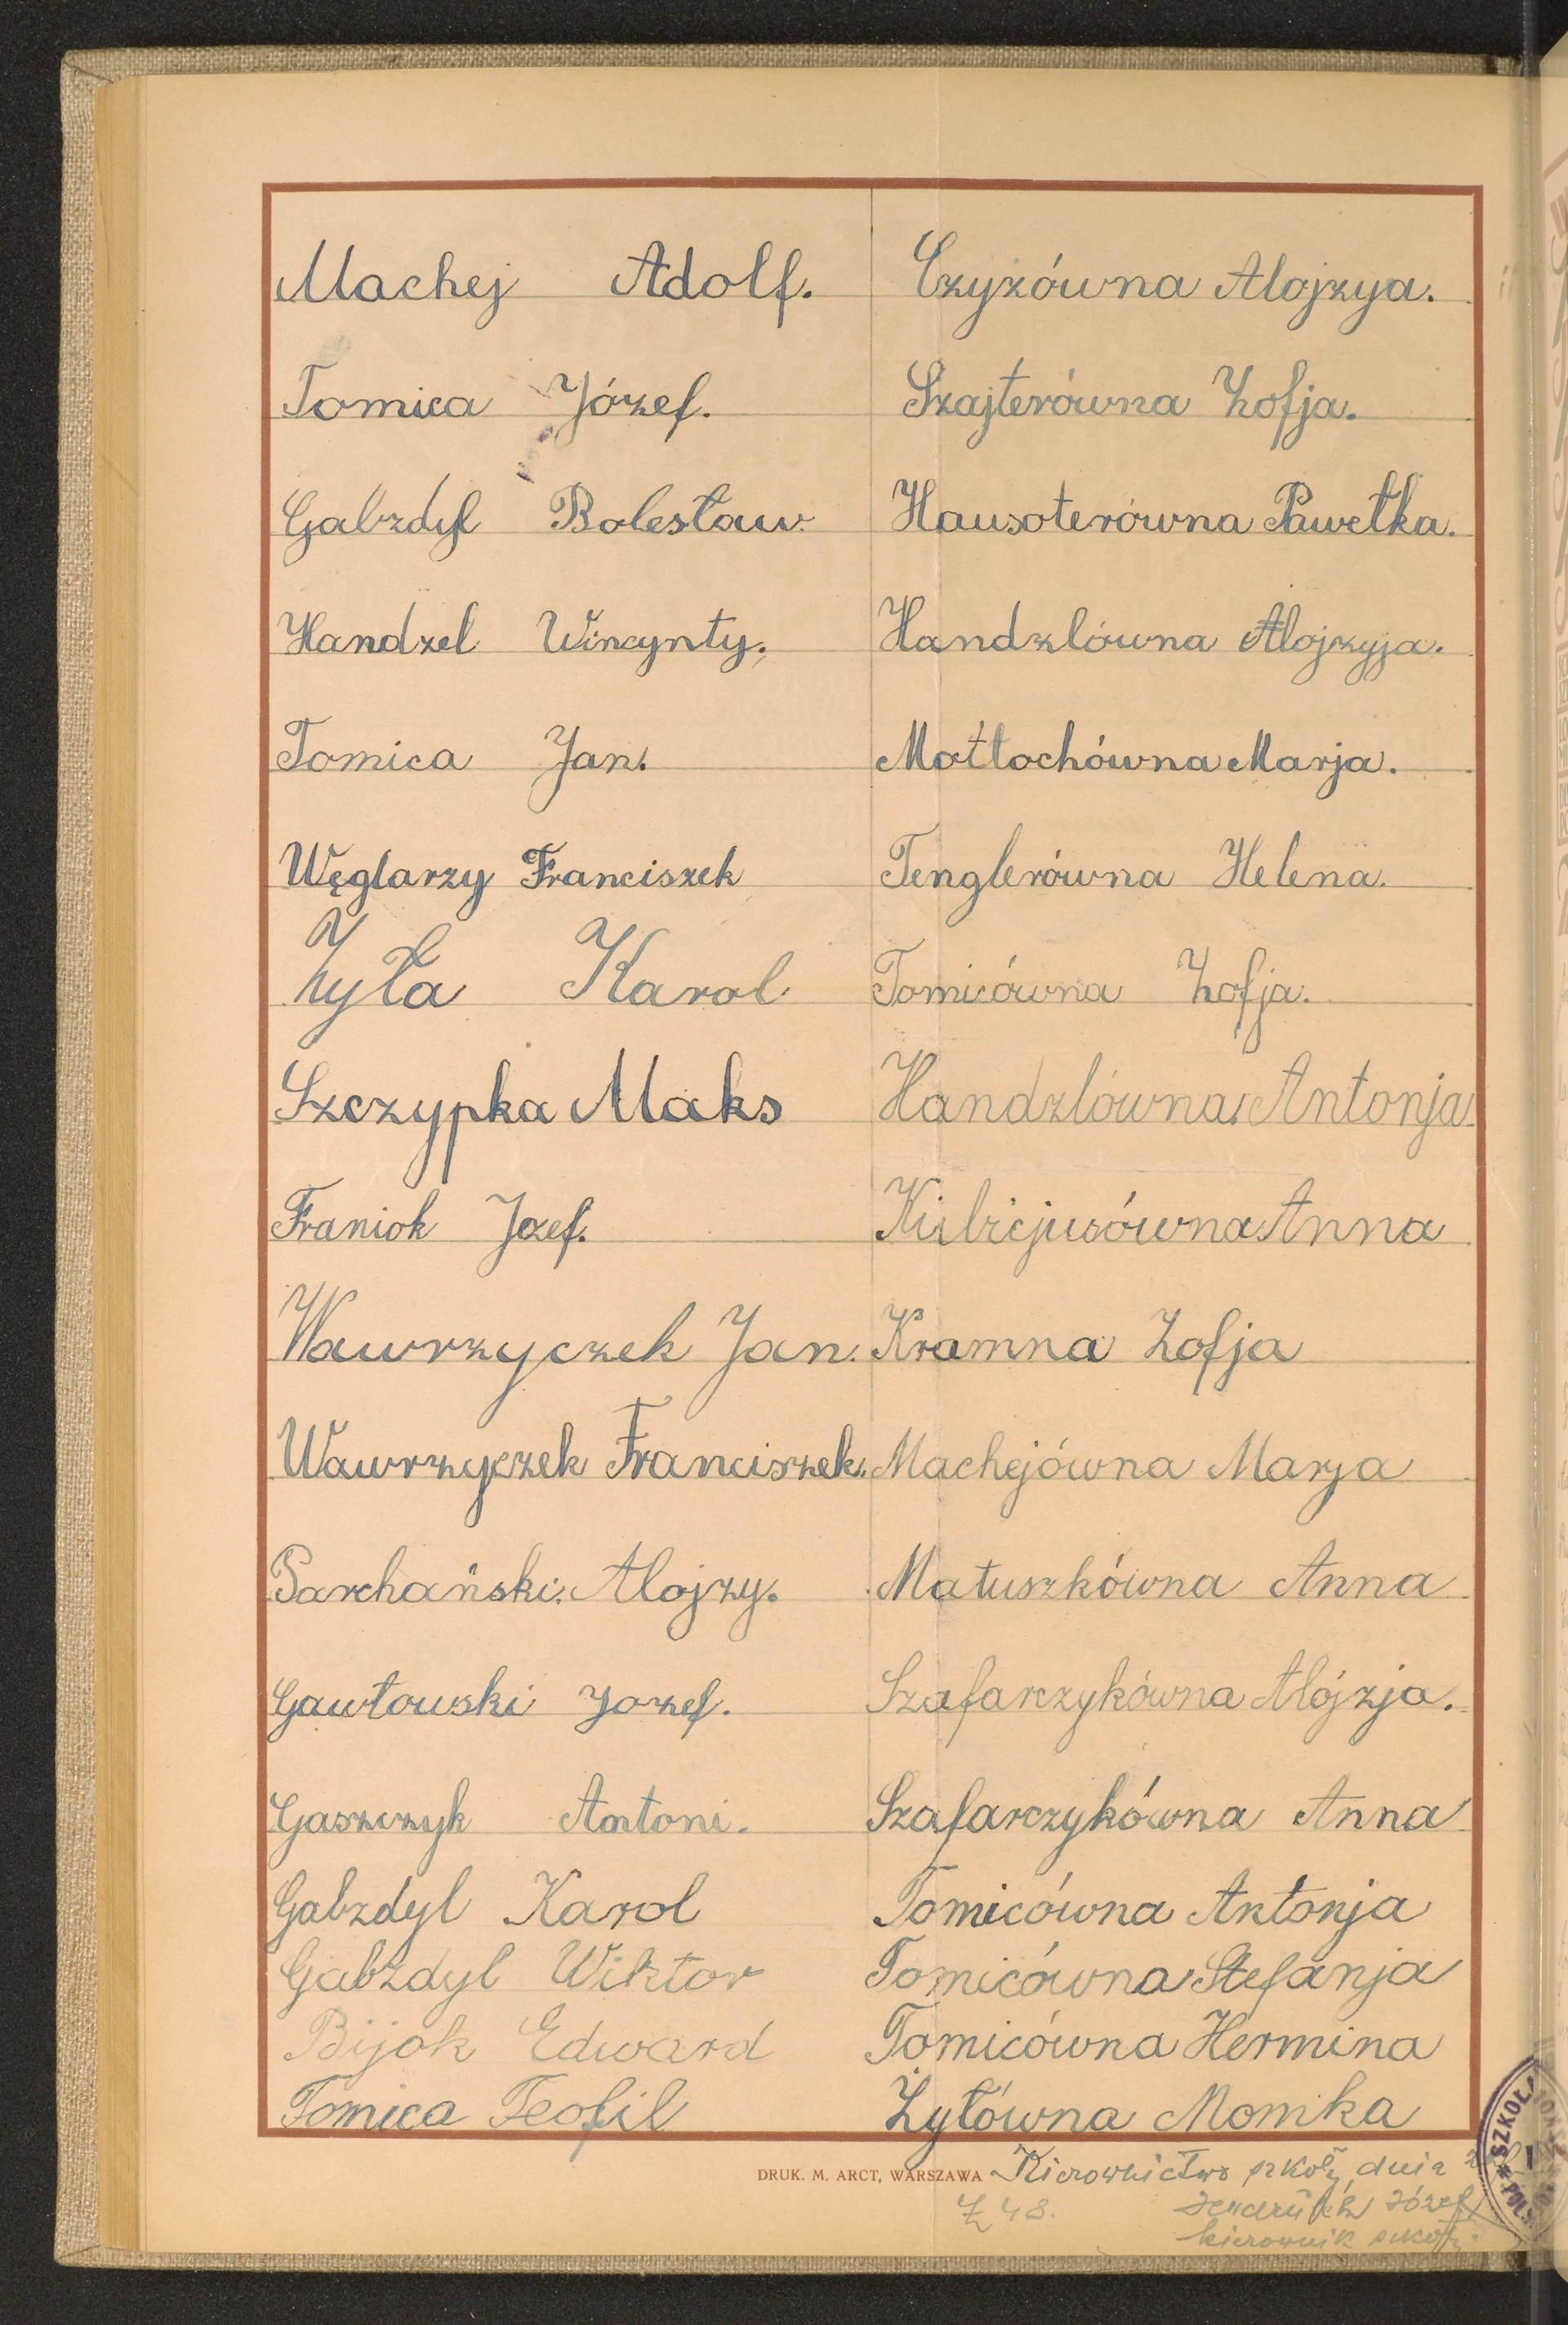 Machej Adolf. Czyżówna Alojzya.
Tomica Józef. Szajterówna Zofja.
Gabzdyl Bolesław. Hausoterówna Pawełka.
Handzel Wincynty. Handzlówna Alojzyja.
Tomica Jan. Motłochówna Marja.
Węglarzy Franciszek Tenglerówna Helena.
Żyła Karol. Tomicówna Zofja.
Szczypka Maks Handzlówna Antonja.
Franiok Jozef. Anna
Wawrzyczek Jan. Kramna Zofja
Wawrzyczek Franciszek. Machejówna Marja
Parchański Alojzy. Matuszkówna Anna
Gawłowski Jozef. Szafarczykówna Alójzja.
Gaszczyk Antoni. Szafarczykówna Anna
Gabzdyl Karol Tomicówna Antonja
Gabzdyl Wiktor Tomicówna Stefanja
Bijok Edward Tomicówna Hermina
Tomica Teofil Żyłówna Monika
DRUK. M. ARCT, WARSZAWA Kierownictwo szkoły dnia
Józef
kierownik szkoły
SZKOŁA